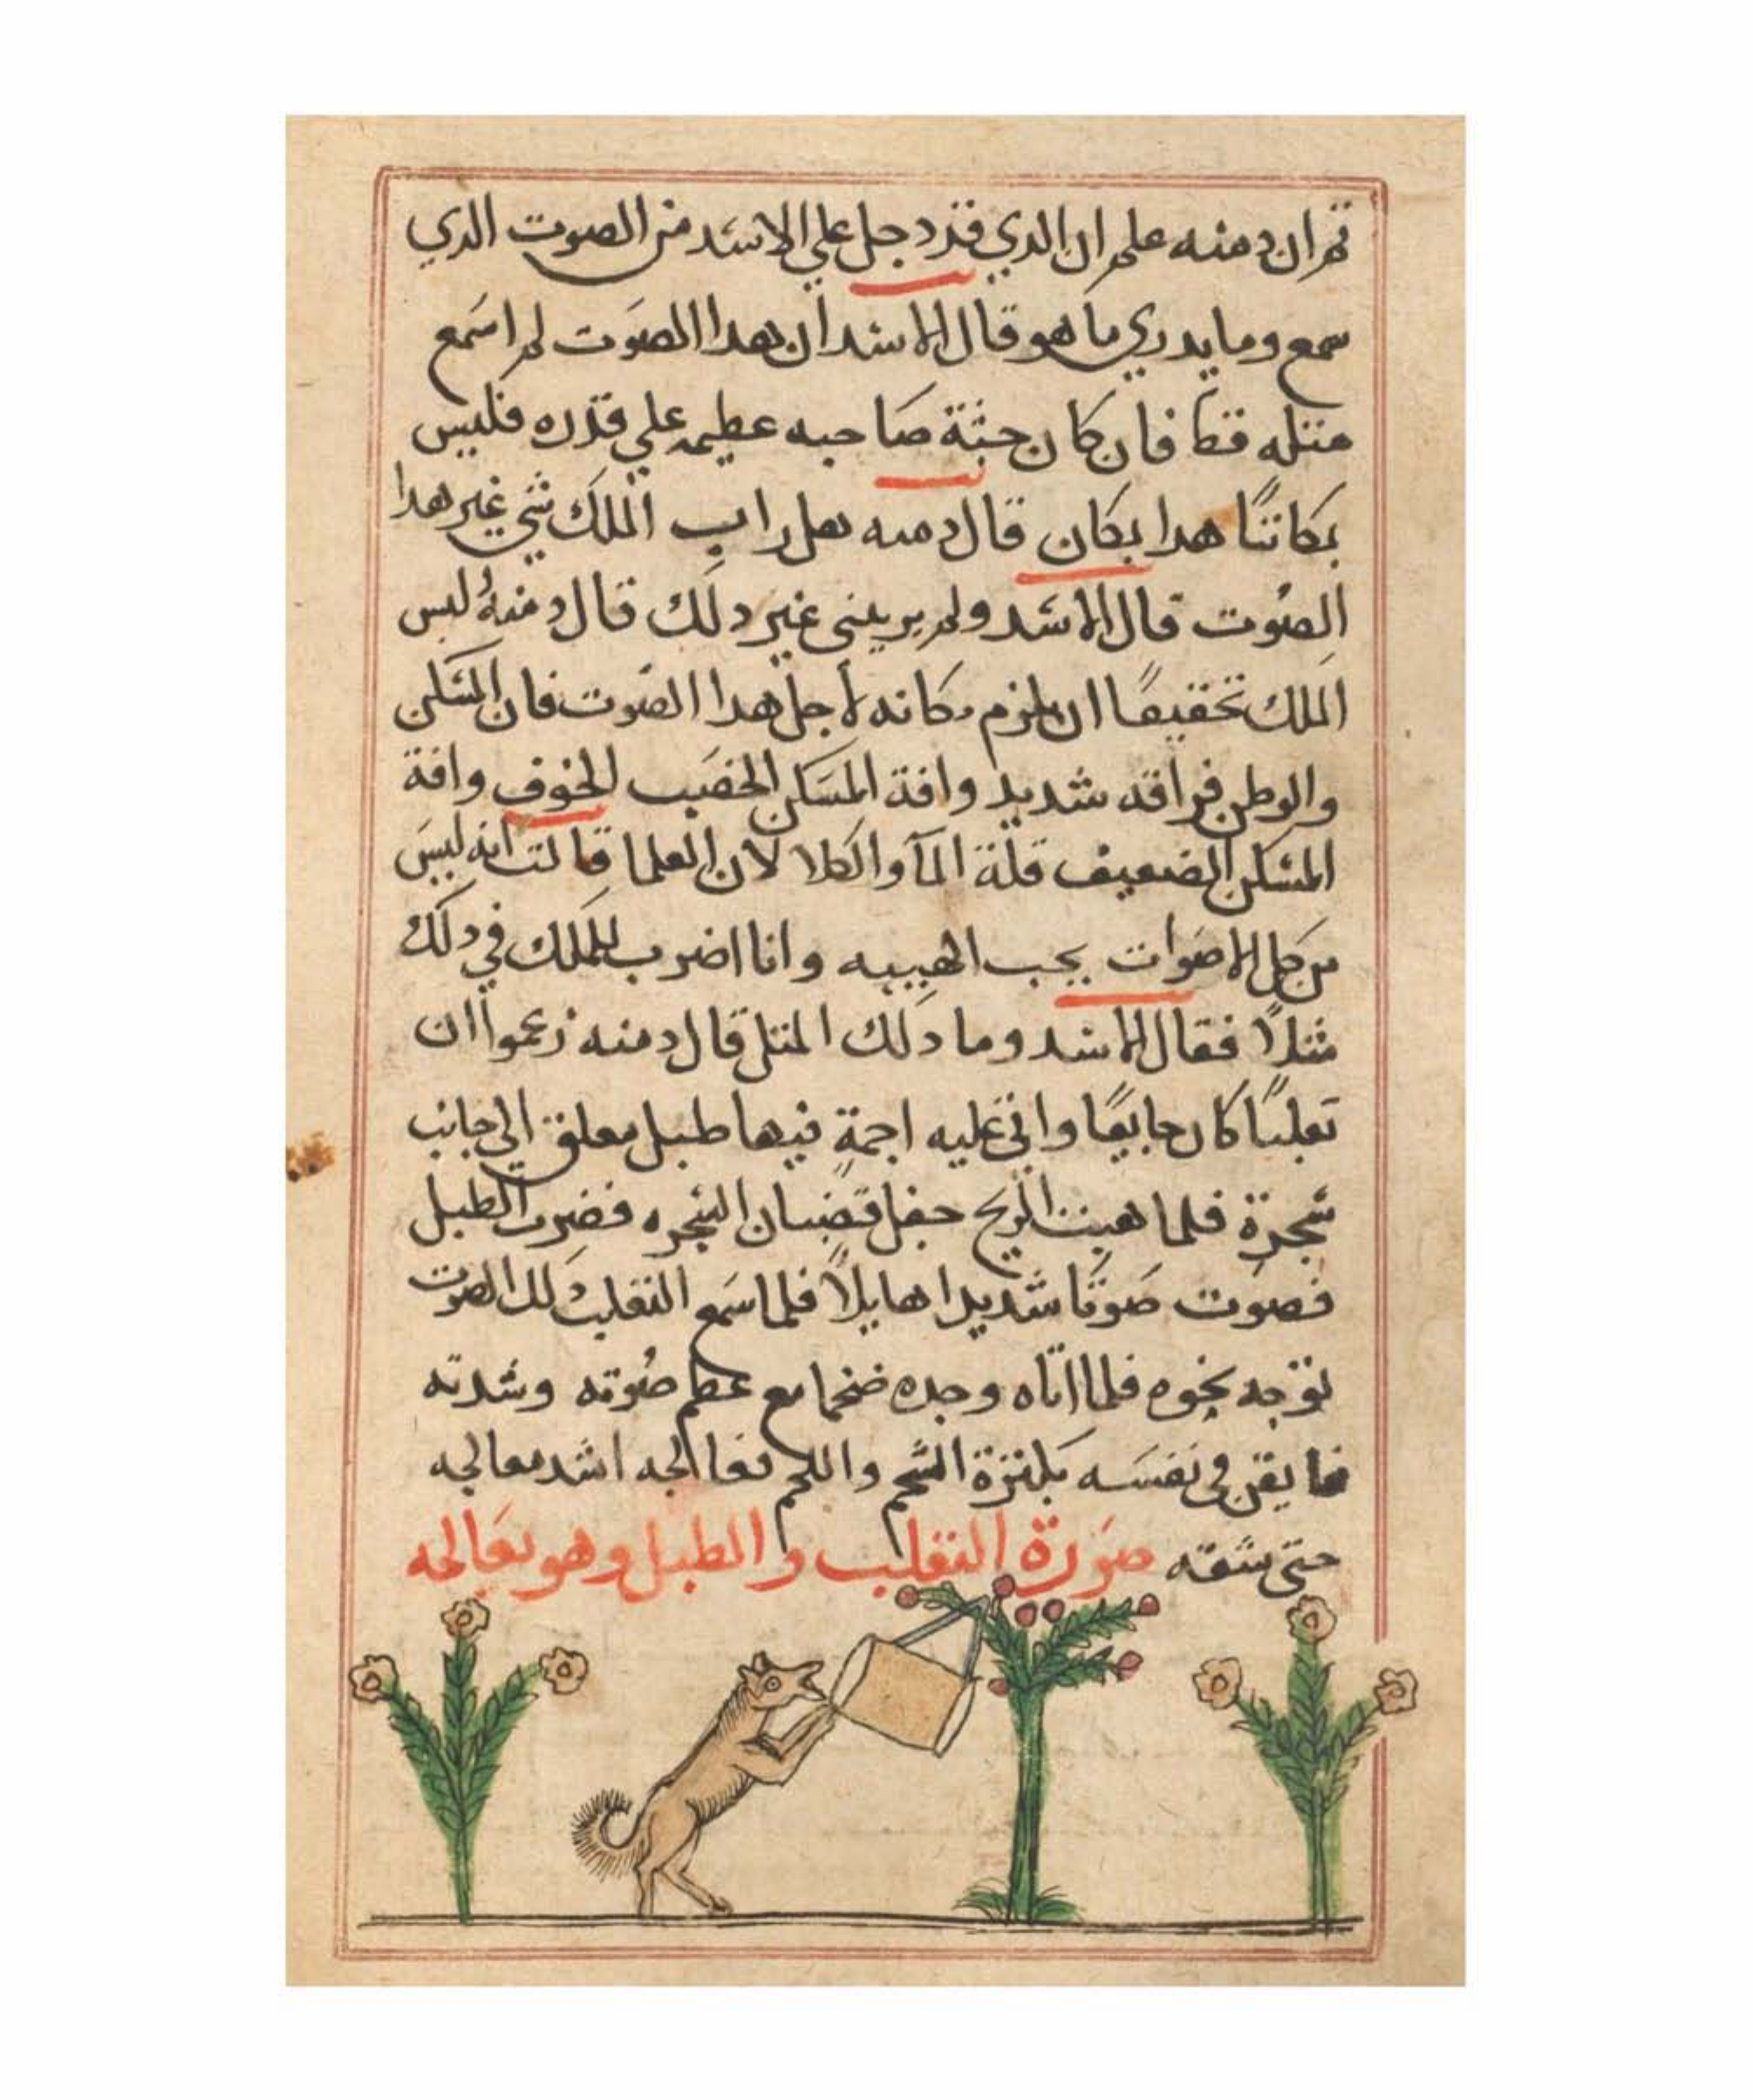 ثم ان دمنه علم ان الدي قد دجل علي الاسد من الصوت الدي
سمع وما يدري ما هو قال الاسد ان هدا الصوت لم اسمع
مثله قط فان كان جثة صاحبه عظيمه علي قدره فليس
بمكاننا هدا بمكان قال دمنه هل راب الملك شي غير هدا
الصوت قال الاسد ولم يريبني غير دلك قال دمنه ليس
الملك تحقيقا ان يلزم مكانه لأجل هدا الصوت فان المسكن
والوطن فراقه شديد وافة المسكن الخصيب الخوف وافة
المسكن الضعيف قلة المآ والكلا لان العلما قالت انه ليس
من كل الاصوات يجب الهيبه وانا اضرب للملك في دلك
مثلاً فقال الاسد وما دلك المثل قال دمنه زعموا ان
تعلبًا كان جايعًا واتى عليه اجمة فيها طبل معلق الى جانب
شجرة فلما هبت الريح جعل قضبان الشجره فضرب الطبل
فصوت صوتًا شديدا هايلاً فلما سمع التعلب لك الصوت
توجه نحوه فلما اتاه وجده ضخما مع عظم صوته وشدته
فايقن في نفسه بكثرة الشحم واللحم فعالجه اشد معالجه
حتى شقه صورة التعلب والطبل وهو يعالجه